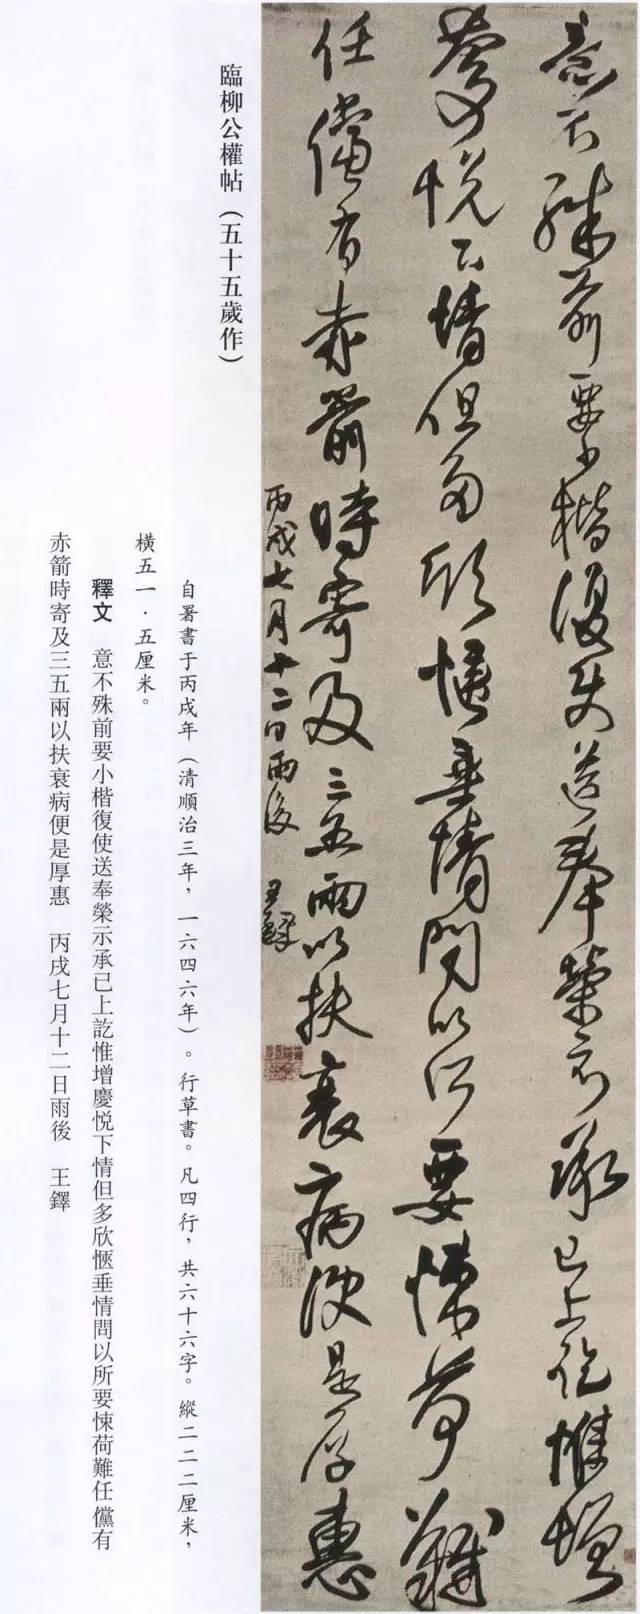 意不殊前要小楷復使送奉榮示承已上訖惟增
慶悦下情但多欣愜垂情問以所要悚荷難
任儻有赤箭時寄及三五兩以扶衰病便是厚惠
丙戌七月十二日雨後 王鐸
臨柳公權帖（五十五歲作）
自署書于丙戌年（清順治三年，一六四六年）。行草書。凡四行，共六十六字。縱二二二厘米，
橫五一·五厘米。
釋文 意不殊前要小楷復使送奉榮示承已上訖惟增慶悦下情但多欣愜垂情問以所要悚荷難任儻有
赤箭時寄及三五兩以扶衰病便是厚惠 丙戌七月十二日雨後 王鐸